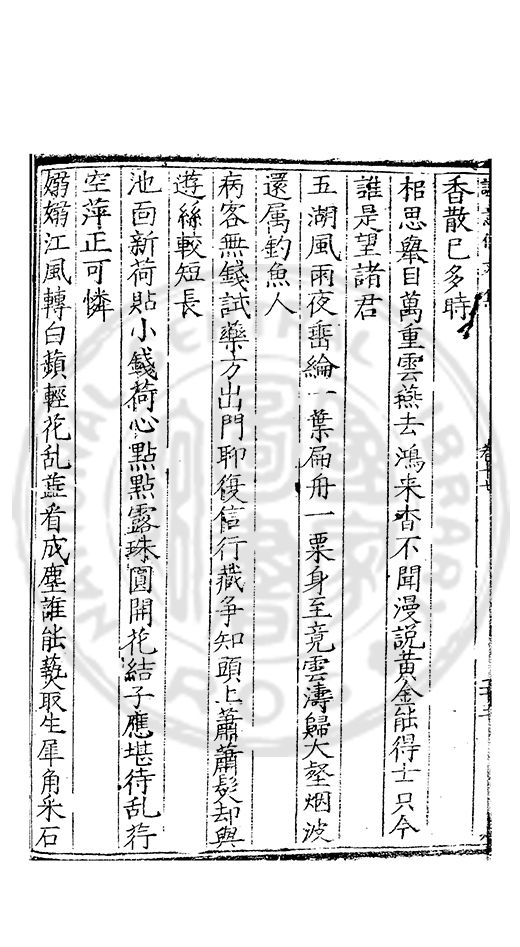 香散已多時
相思舉目萬重雲燕去鴻来杳不聞漫説黄金能得士只今
誰是望諸君
五湖風雨夜垂綸一葉扁舟一粟身至竟雲濤歸大壑烟波
還属釣魚人
病客無錢試藥方出門聊復信行藏争知頭上蕭蕭髪却與
遊絲較短長
池面新荷貼小錢荷心點點露珠圓開花結子應堪待乱行
空萍正可憐
嫋嫋江風轉白蘋輕花乱蘂看成塵誰能爇取生犀角采石